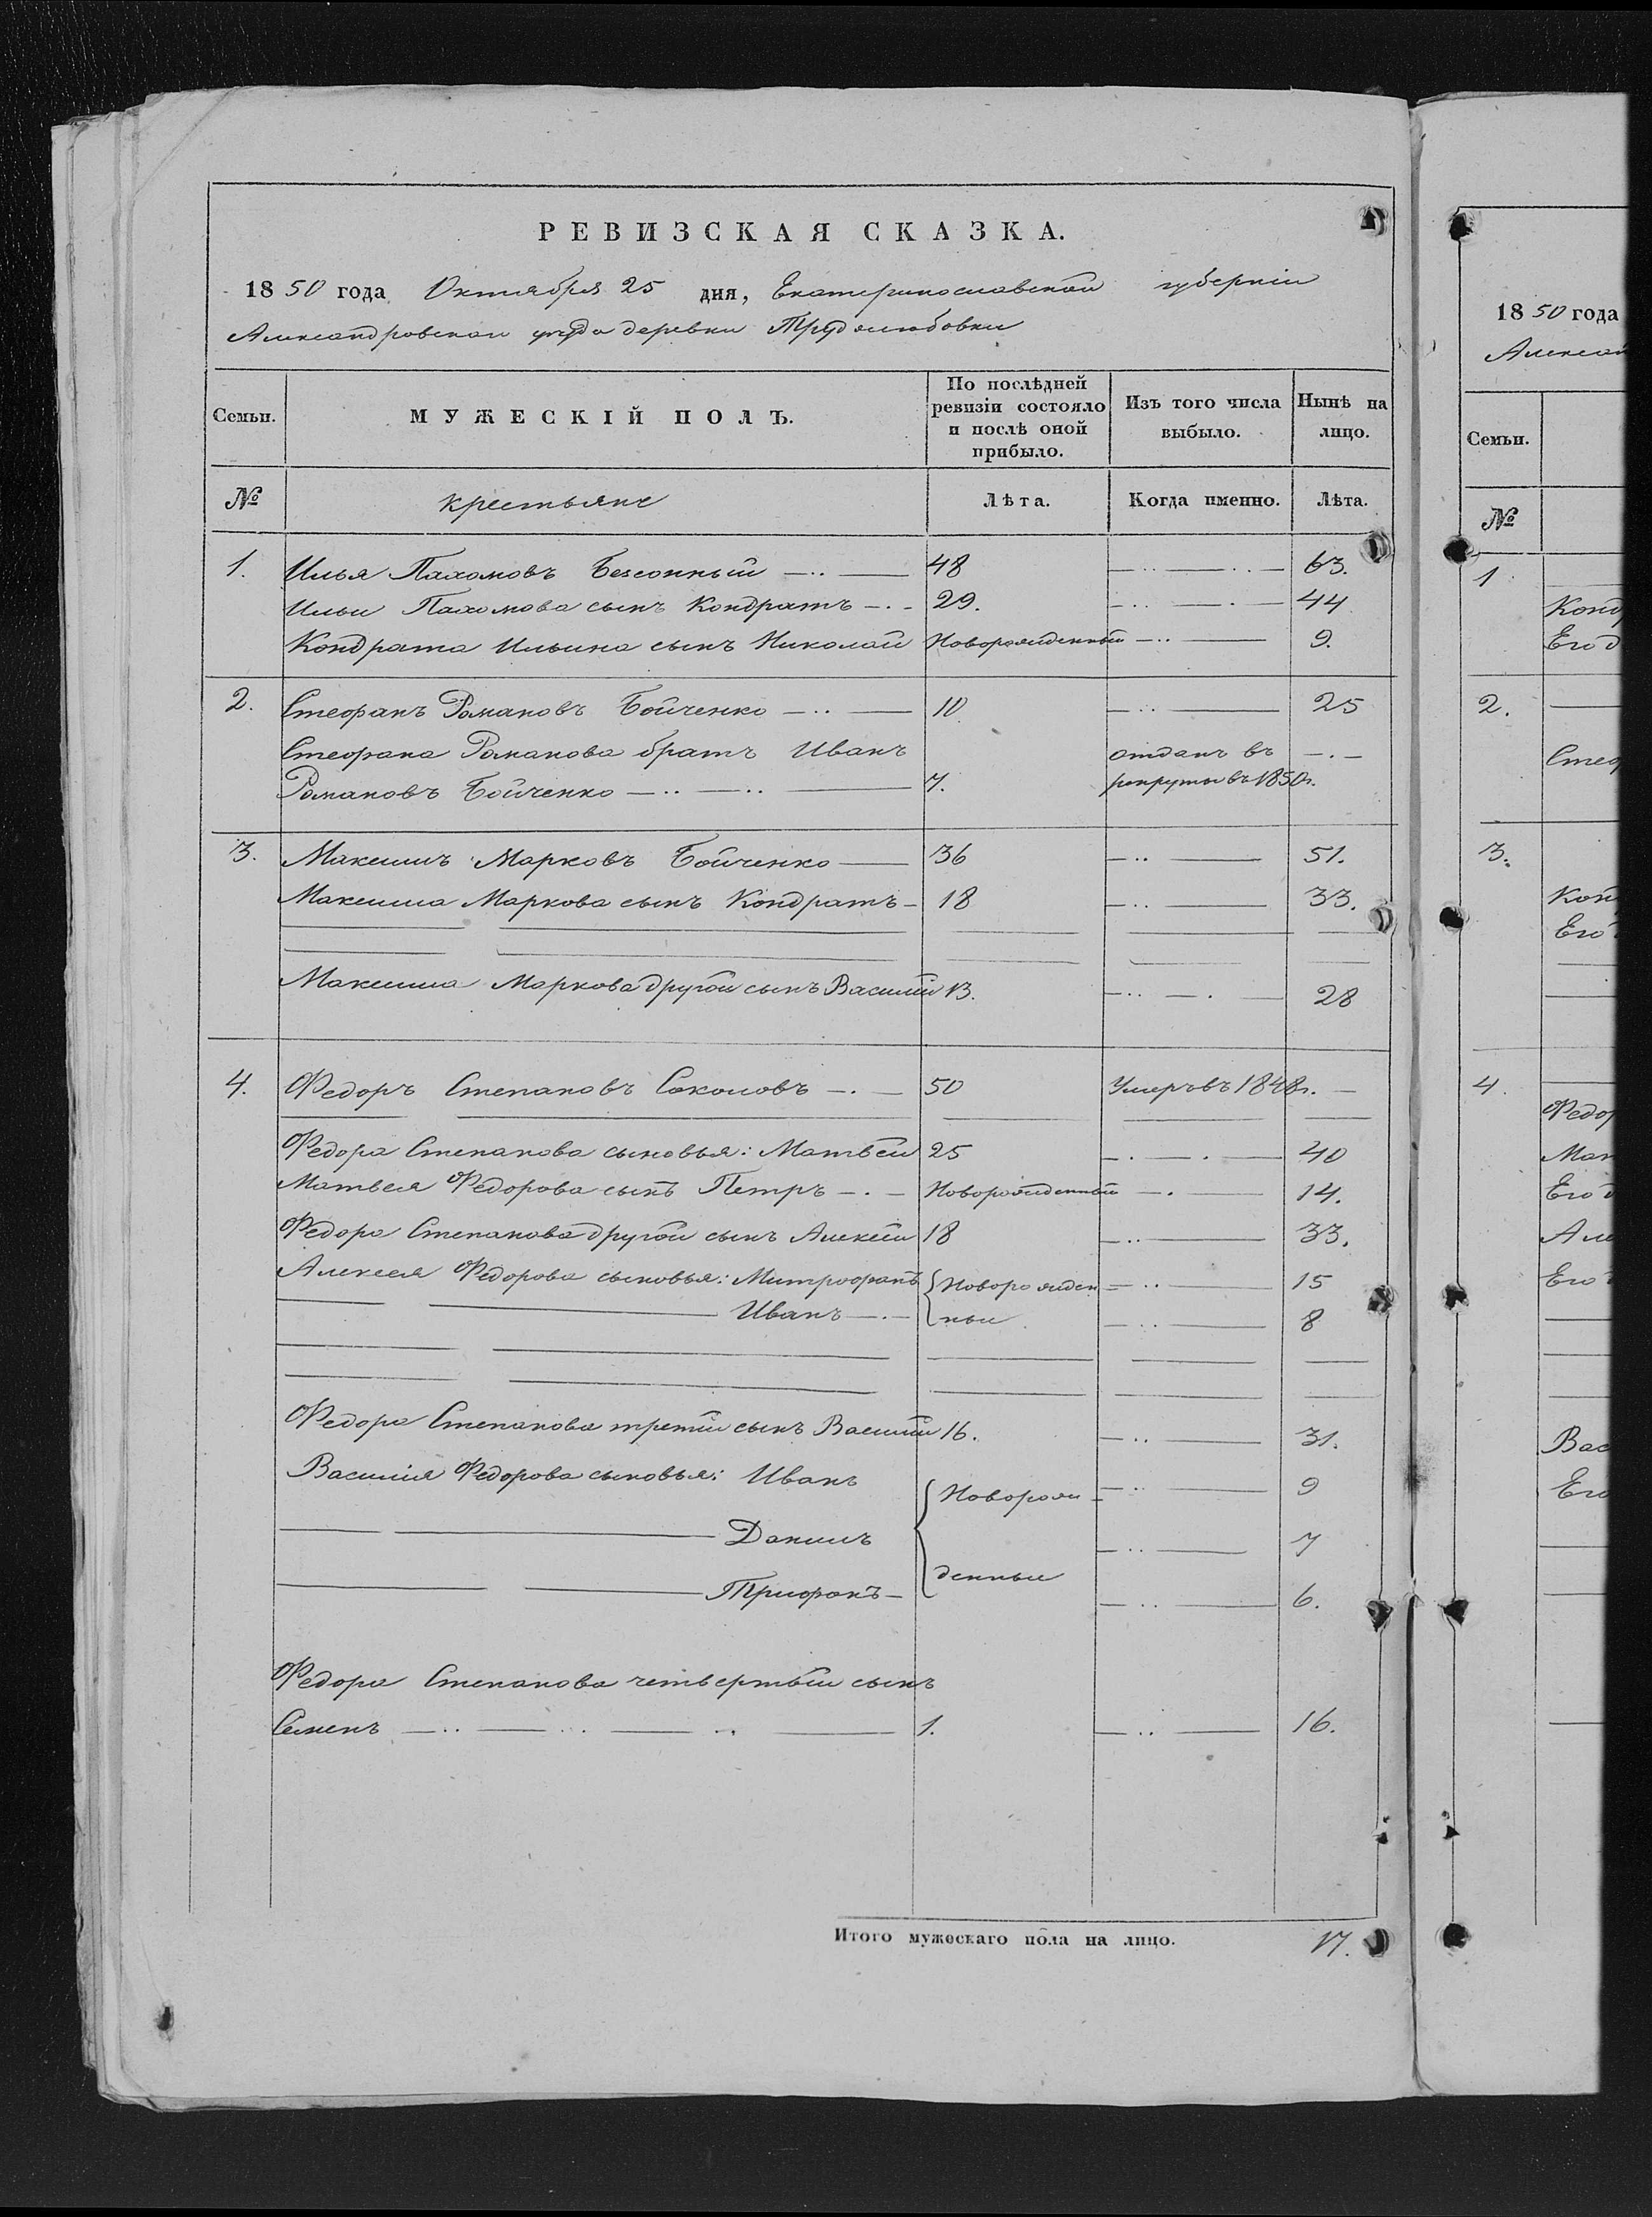 РЕВИЗСКАЯ СКАЗКА.
1850 года Октября 25 дня, Екатеринославской губерніи
Александровскаго уезда деревни Трудолюбовки
Семьи. МУЖЕСКІЙ ПОЛЪ. По послѣдней ревизіи состояло и послѣ оной прибыло. Изъ того числа выбыло. Нынѣ на лицо.
№ крестьяне Лѣта. Когда именно. Лѣта.
1. Илья Пахомовъ Безсонный 48 63.
Ильи Пахомова сынъ Кондратъ 29. 44
Кондрата Ильина сынъ Николай Новорожденный 9.
2. Стефанъ Романовъ Бойченко 10 25
Стефана Романова братъ Иванъ отданъ въ
Романовъ Бойченко 7. рекруты въ 1850г.
3. Максимъ Марковъ Бойченко 36 51.
Максима Маркова сынъ Кондратъ 18 33.
Максима Маркова другой сынъ Василій 13. 28
4. Федоръ Степановъ Соколовъ 50 Умеръ въ 1848г.
Федора Степанова сыновья: Матвей 25 40
Матвея Федорова сынъ Петръ Новорожденный 14.
Федора Степанова другой сынъ Алексей 18 33.
Алексея Федорова сыновья: Митрофанъ Новорожден 15
Иванъ ные 8
Федора Степанова третій сынъ Василій 16. 31.
Василія Федорова сыновья: Иванъ Наворож 9
Данилъ 7
Трифонъ денные 6.
Федора Степанова четвертый сынъ
Семенъ 1. 16.
Итого мужескаго пола на лицо. 17.
1850 года
Алексан
Семьи.
№
1
Конд
Его д
2.
Стеф
3.
Кон
Его
4.
Федор
Мат
Его д
Але
Его
Вас
Его